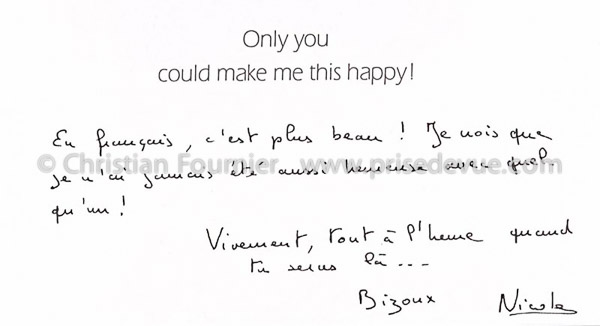 Only you
could make me this happy!
En français, c'est plus beau ! Je crois que
© Christian Fournier www.prisedevue.com
je n'ai jamais été aussi heureuse avec quel-
qu'un !
Vivement, tout à l'heure quand
tu seras là ....
Bizoux Nicole